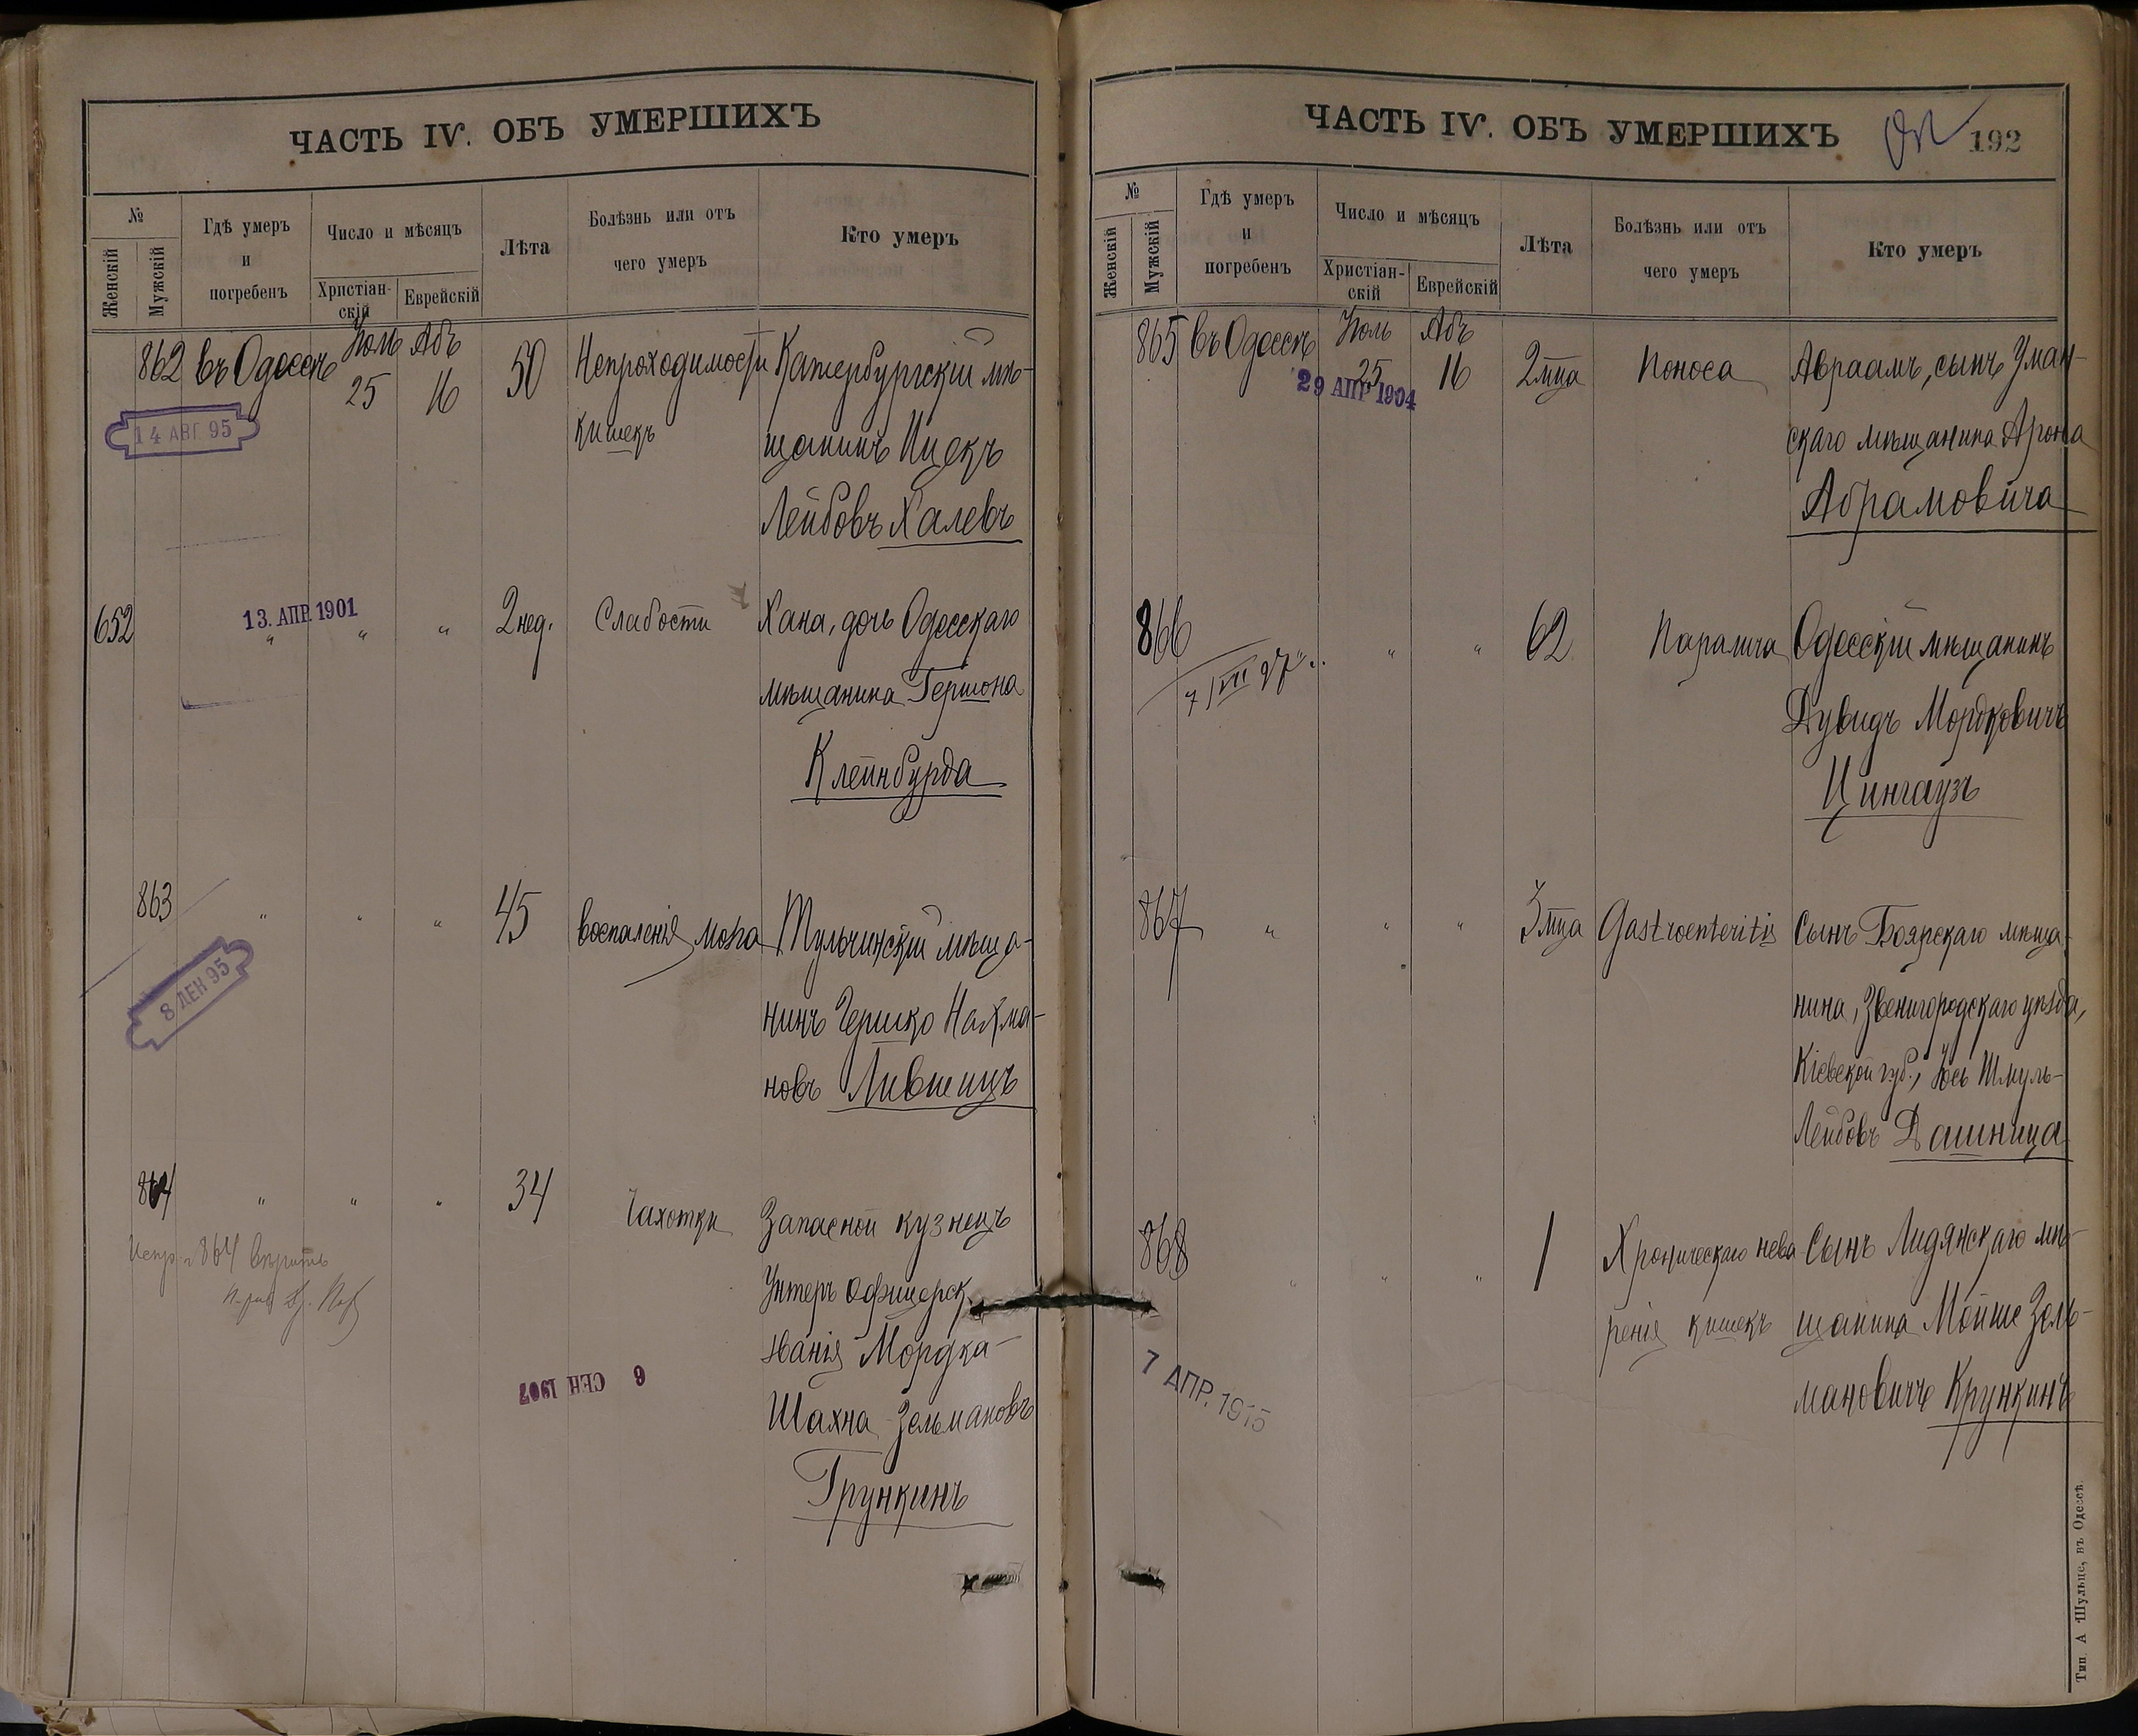 ЧАСТЬ IV. ОБЪ УМЕРШИХЪ
№
Женскій
Мужскій
Гдѣ умеръ
и
погребенъ
Число и мѣсяцъ
Христіан-
скій
Еврейскій
Лѣта
Болѣзнь или отъ
чего умеръ
Кто умеръ
862 въ Одессѣ Іюль 25 Абъ 16 50 Непроходимости Катербургскій мѣ-
кишекъ щанинъ Ицекъ
Лейбовъ Халевъ
14 АВГ. 95
652 " " " 2 нед. Слабости Хана, дочь Одесскаго
13. АПР. 1901
мѣщанина Гершона
Клейнбурда
863 " " " 45 воспаленія мозга Тульчинскій мѣща-
нинъ Гершко Нахма-
новъ Лившицъ
8 ДЕК 95
864 " " " 34 Чахотки Запасной кузнецъ
864 вѣрить
Унтеръ Офицерск.
званія Мордка-
6 СЕН 1907
Шахна Зельмановъ
Грункинъ
ЧАСТЬ IV. ОБЪ УМЕРШИХЪ
192
№
Женскій
Мужскій
Гдѣ умеръ
и
погребенъ
Число и мѣсяцъ
Христіан-
скій
Еврейскій
Лѣта
Болѣзнь или отъ
чего умеръ
Кто умеръ
865 въ Одессѣ Іюль 25 Абъ 16 2 мца Поноса Авраамъ, сынъ Уман-
29 АПР 1904
скаго мѣщанина Арона
Абрамовича
866 " " " 62 Паралича Одесскій мѣщанинъ
7/VII 97
Дувидъ Мордковичъ
Цингаузъ
867 " " " 3 мца Gastroenteritis Сынъ Боярскаго мѣща-
нина, Звенигородскаго уѣзда,
Кіевской губ., Іось Шмуль-
Лейбовъ Дашница
868 " " " 1 Хроническаго нева- Сынъ Лидянскаго мѣ-
ренія кишекъ щанина Мойше Зель-
мановичъ Крункинъ
7 АПР. 1915
Тип. А Шульце, въ Одессѣ.